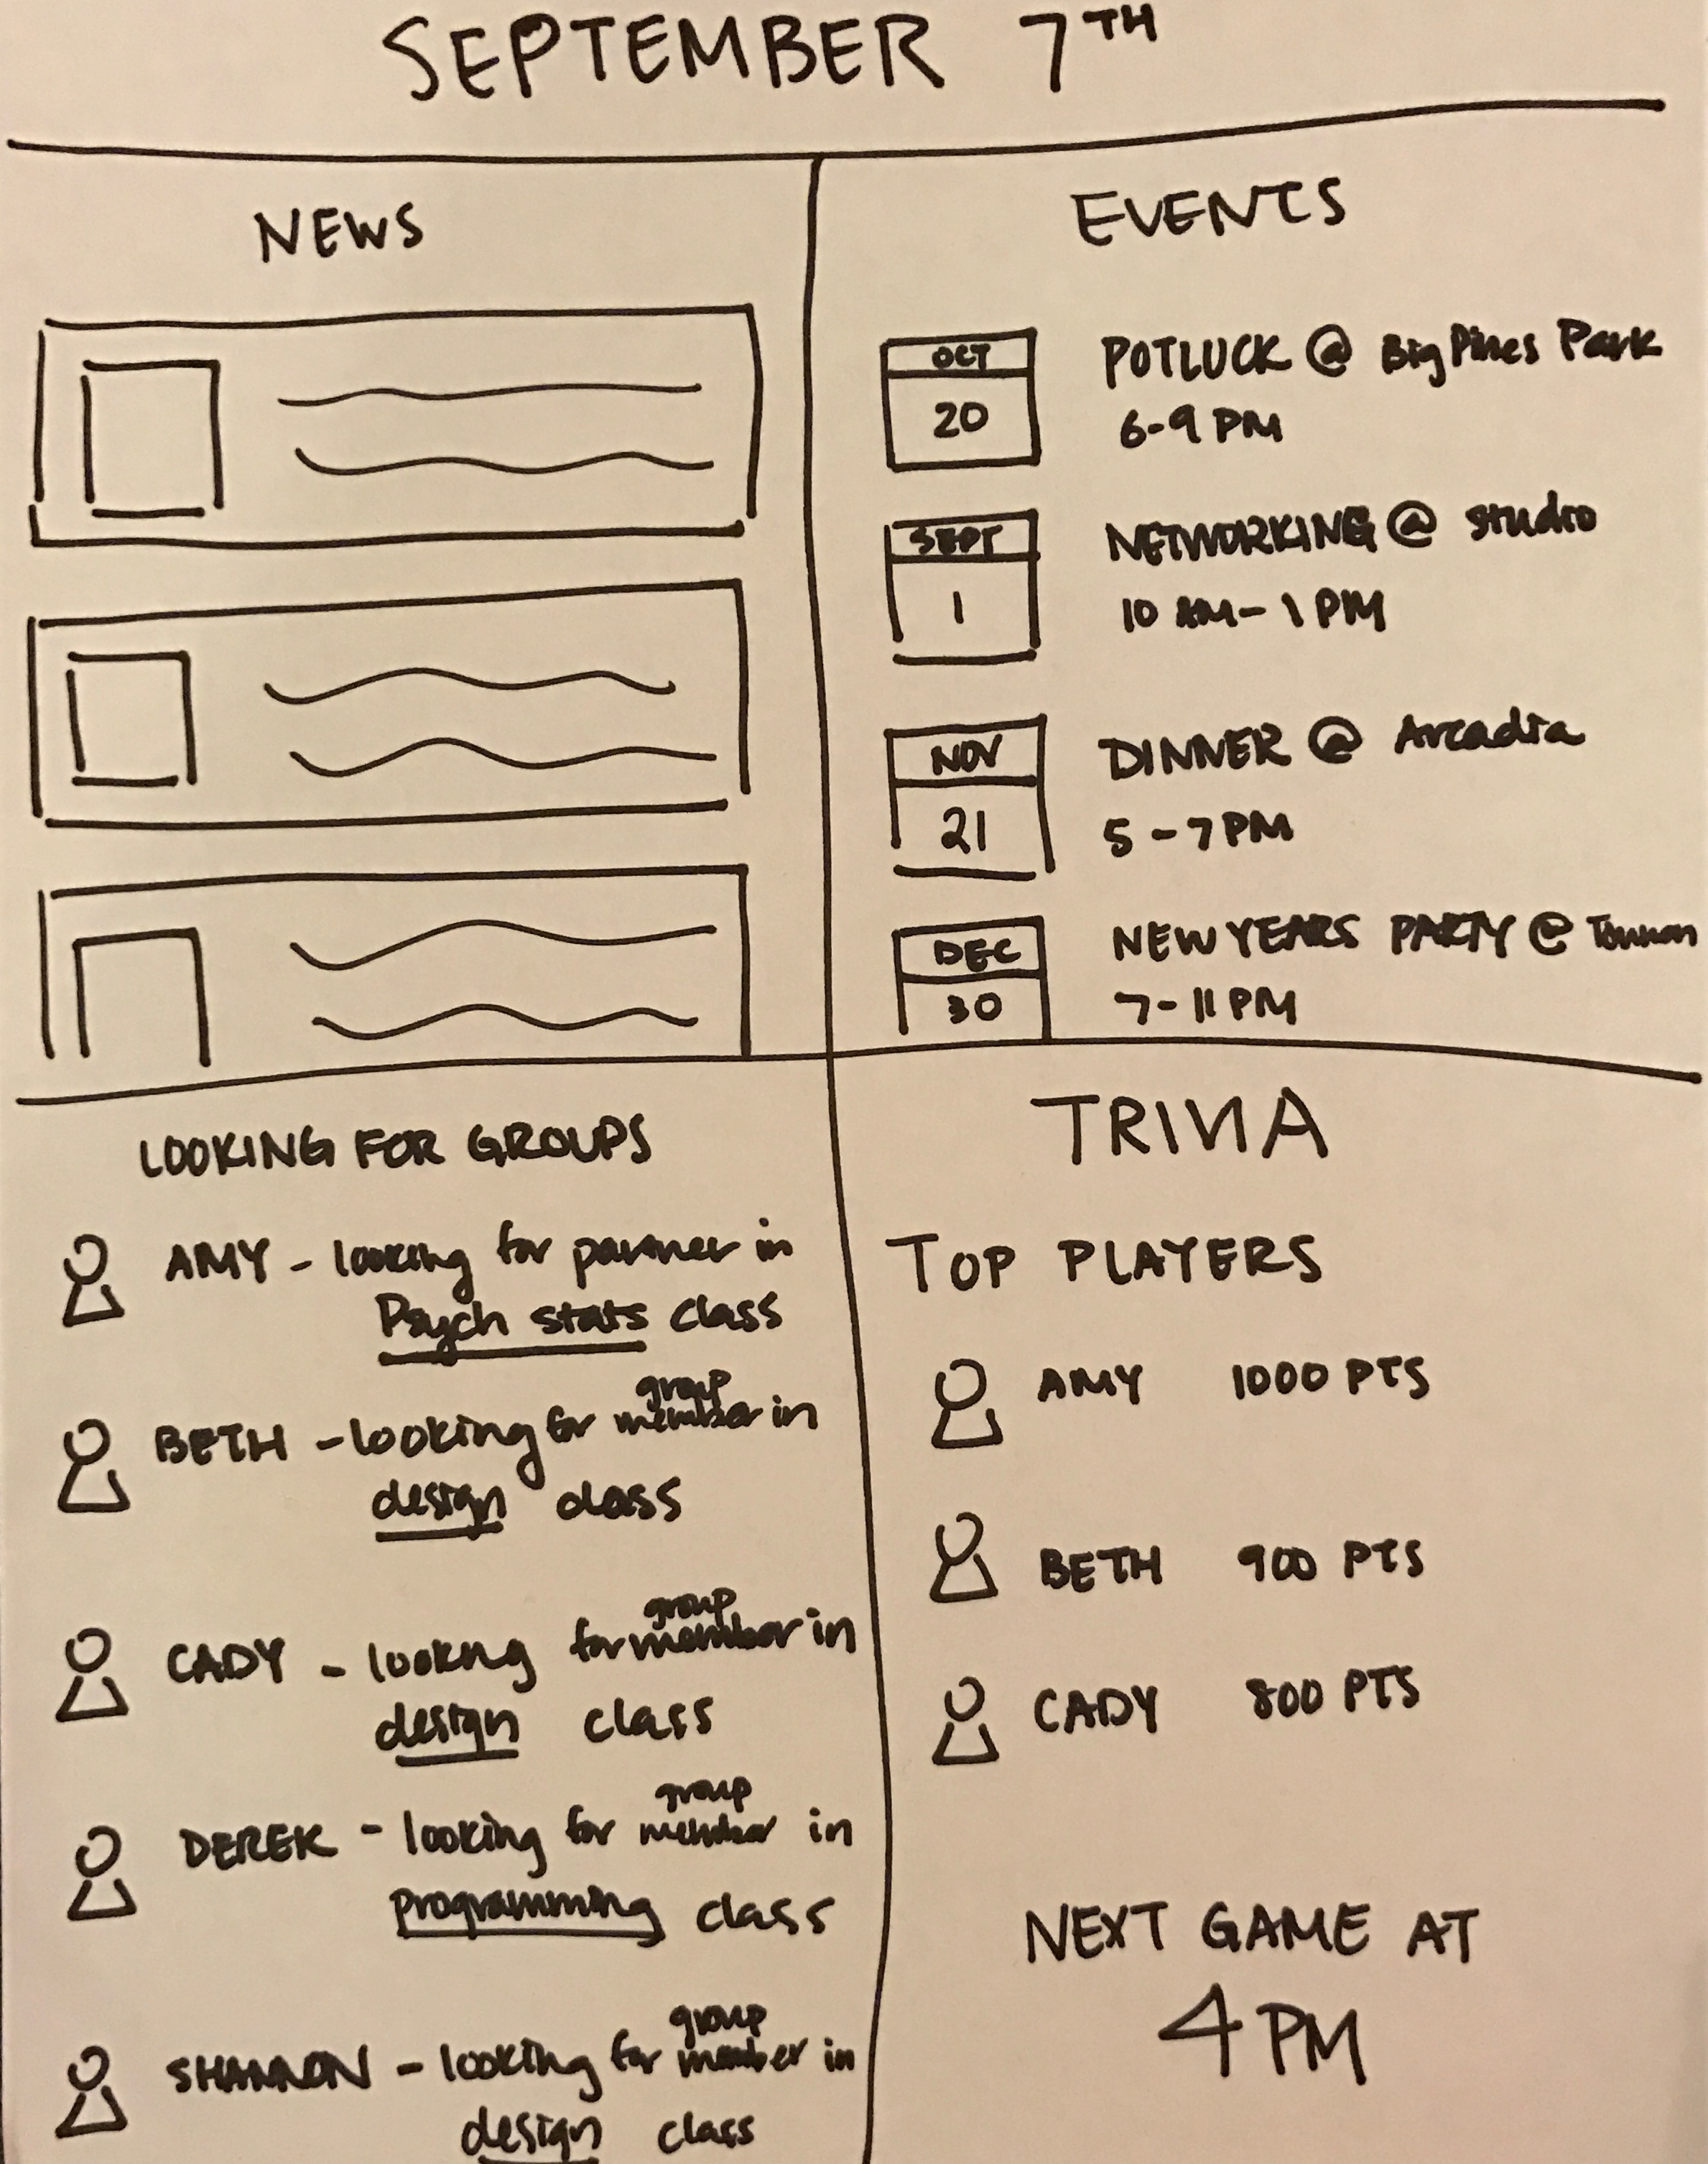 SEPTEMBER 7TH
NEWS
EVENTS
OCT
20
POTLUCK @ Big Pines Park
6-9 PM
SEPT
1
NETWORKING @ studio
10 AM - 1 PM
NOV
21
DINNER @ Arcadia
5 - 7 PM
DEC
30
NEW YEARS PARTY @
7 - 11 PM
LOOKING FOR GROUPS
AMY - looking for partner in
Psych stats class
BETH - looking for group member in
design class
CADY - looking for group member in
design class
DEREK - looking for group member in
programming class
SHANNON - looking for group member in
design class
TRIVIA
TOP PLAYERS
AMY 1000 PTS
BETH 900 PTS
CADY 800 PTS
NEXT GAME AT
4 PM